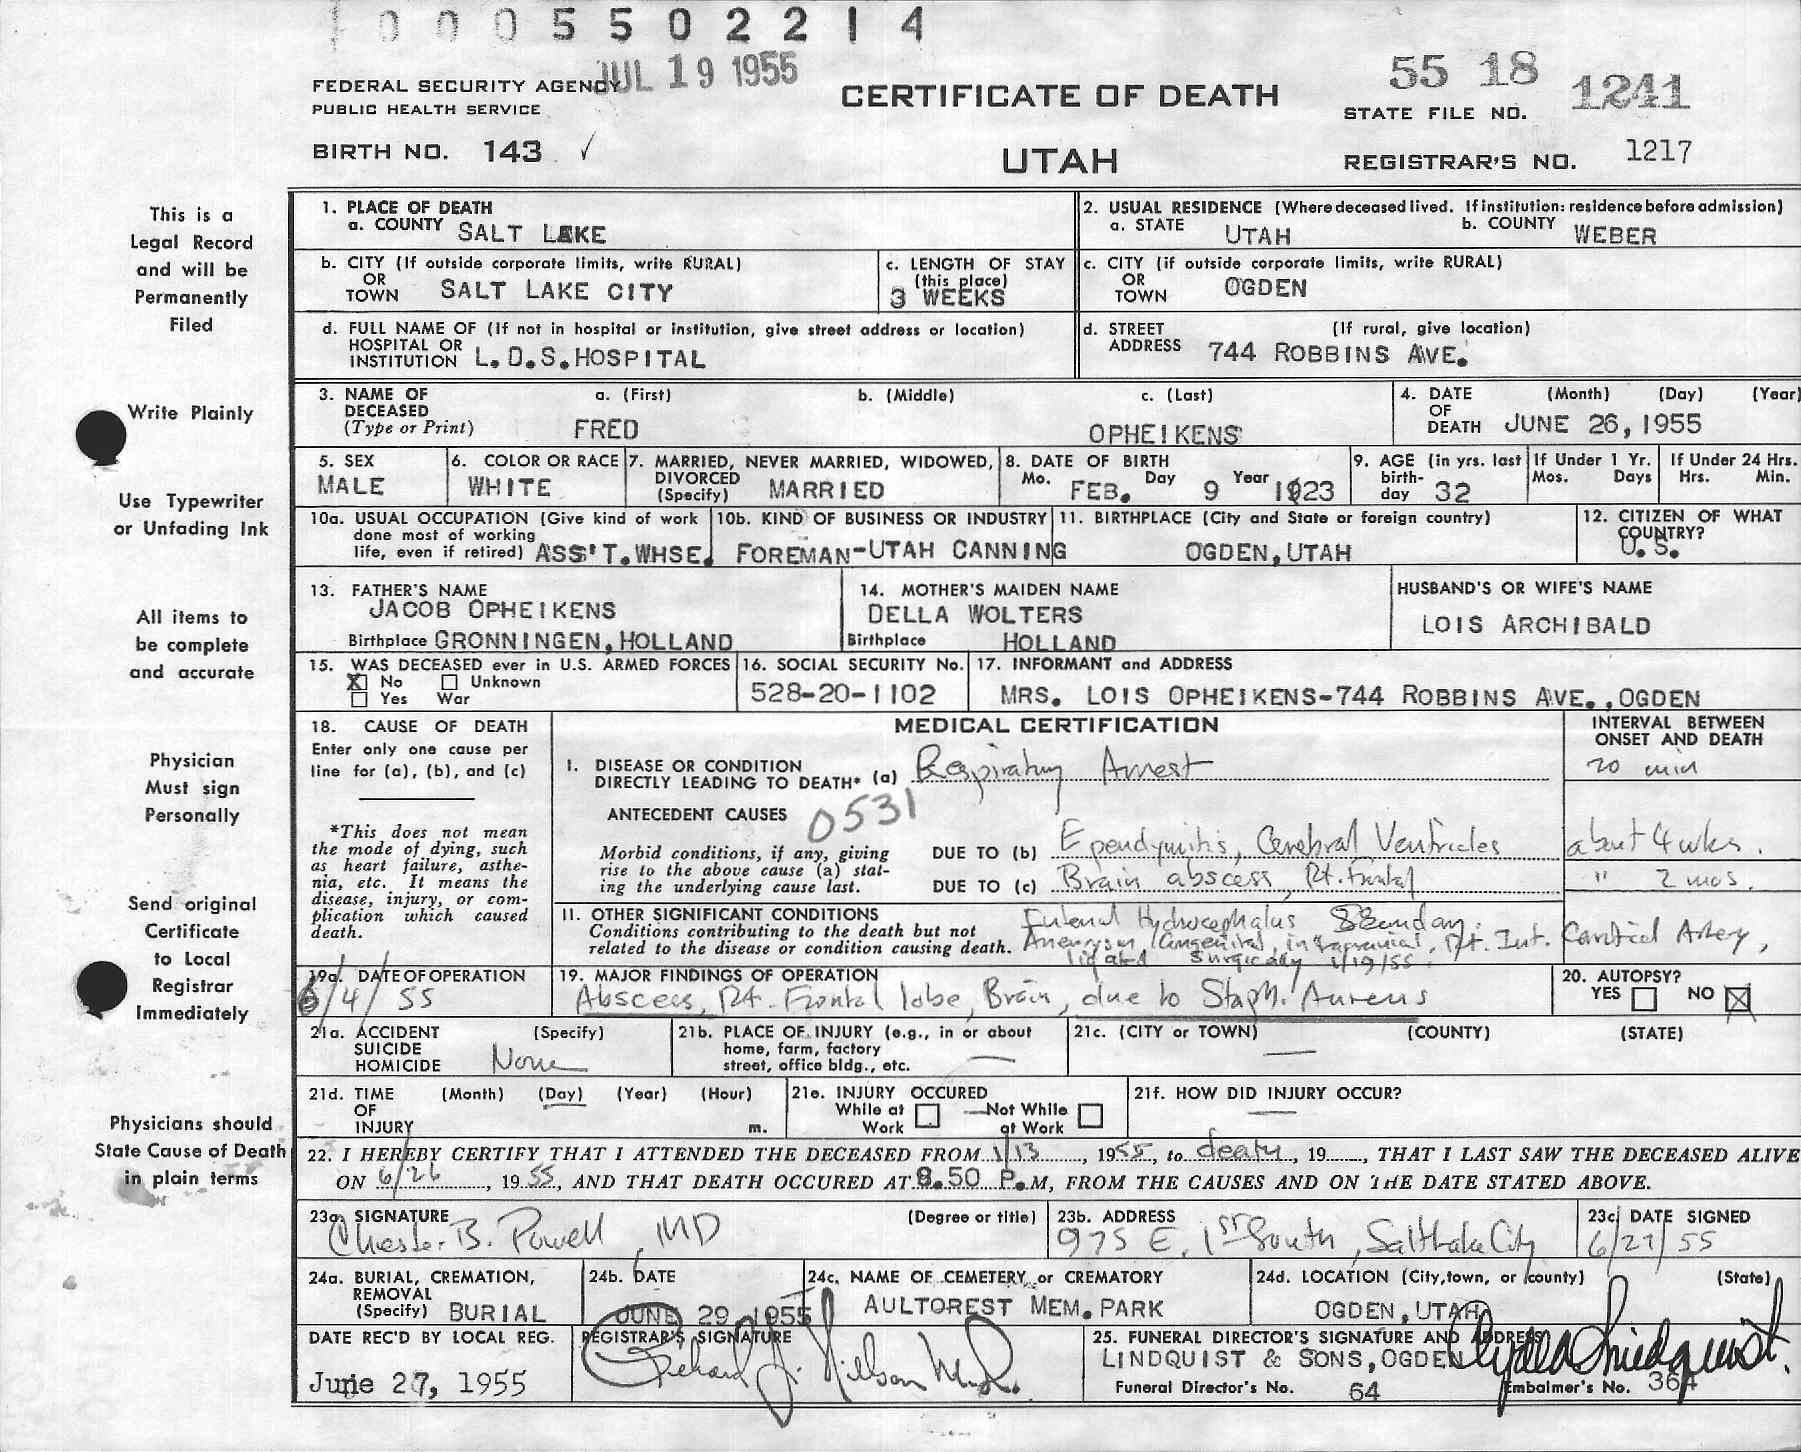 1 0 0 0 5 5 0 2 2 1 4
JUL 19 1955
FEDERAL SECURITY AGENCY
PUBLIC HEALTH SERVICE
CERTIFICATE OF DEATH
55 18 1241
STATE FILE NO.
BIRTH NO. 143 ✓
UTAH
REGISTRAR'S NO. 1217
This is a
Legal Record
and will be
Permanently
Filed
Write Plainly
Use Typewriter
or Unfading Ink
All items to
be complete
and accurate
Physician
Must sign
Personally
Send original
Certificate
to Local
Registrar
Immediately
Physicians should
State Cause of Death
in plain terms
1. PLACE OF DEATH
a. COUNTY SALT LAKE
2. USUAL RESIDENCE (Where deceased lived. If institution: residence before admission)
a. STATE UTAH b. COUNTY WEBER
b. CITY (If outside corporate limits, write RURAL)
OR
TOWN SALT LAKE CITY
c. LENGTH OF STAY
(this place)
3 WEEKS
c. CITY (if outside corporate limits, write RURAL)
OR
TOWN OGDEN
d. FULL NAME OF (If not in hospital or institution, give street address or location)
HOSPITAL OR
INSTITUTION L.D.S.HOSPITAL
d. STREET (If rural, give location)
ADDRESS 744 ROBBINS AVE.
3. NAME OF a. (First) b. (Middle) c. (Last)
DECEASED
(Type or Print) FRED OPHEIKENS
4. DATE (Month) (Day) (Year)
OF
DEATH JUNE 26, 1955
5. SEX
MALE
6. COLOR OR RACE
WHITE
7. MARRIED, NEVER MARRIED, WIDOWED,
DIVORCED
(Specify) MARRIED
8. DATE OF BIRTH
Mo. FEB. Day 9 Year 1923
9. AGE (in yrs. last
birth-
day 32
If Under 1 Yr.
Mos. Days
If Under 24 Hrs.
Hrs. Min.
10a. USUAL OCCUPATION (Give kind of work
done most of working
life, even if retired) ASS'T.WHSE.
10b. KIND OF BUSINESS OR INDUSTRY
FOREMAN-UTAH CANNING
11. BIRTHPLACE (City and State or foreign country)
OGDEN,UTAH
12. CITIZEN OF WHAT
COUNTRY?
U.S.
13. FATHER'S NAME
JACOB OPHEIKENS
Birthplace GRONNINGEN,HOLLAND
14. MOTHER'S MAIDEN NAME
DELLA WOLTERS
Birthplace HOLLAND
HUSBAND'S OR WIFE'S NAME
LOIS ARCHIBALD
15. WAS DECEASED ever in U.S. ARMED FORCES
X No Unknown
Yes War
16. SOCIAL SECURITY No.
528-20-1102
17. INFORMANT and ADDRESS
MRS. LOIS OPHEIKENS-744 ROBBINS AVE.,OGDEN
18. CAUSE OF DEATH
Enter only one cause per
line for (a), (b), and (c)
*This does not mean
the mode of dying, such
as heart failure, asthe-
nia, etc. It means the
disease, injury, or com-
plication which caused
death.
MEDICAL CERTIFICATION
INTERVAL BETWEEN
ONSET AND DEATH
I. DISEASE OR CONDITION
DIRECTLY LEADING TO DEATH* (a) Respiratory Arrest 20 min
ANTECEDENT CAUSES 0531
Morbid conditions, if any, giving
rise to the above cause (a) stat-
ing the underlying cause last.
DUE TO (b) Ependymitis, Cerebral Ventricles about 4 wks.
DUE TO (c) Brain abscess, Rt. Frontal " 2 mos.
II. OTHER SIGNIFICANT CONDITIONS
Conditions contributing to the death but not
related to the disease or condition causing death.
Hydrocephalus Secondary.
Aneurysm, Congenital, intracranial, Rt. Int. Carotid Artery,
ligated surgically 1/19/55.
19a. DATE OF OPERATION
6/4/55
19. MAJOR FINDINGS OF OPERATION
Abscess, Rt. Frontal lobe, Brain, due to Staph. Aureus
20. AUTOPSY?
YES NO X
21a. ACCIDENT (Specify)
SUICIDE
HOMICIDE None
21b. PLACE OF INJURY (e.g., in or about
home, farm, factory
street, office bldg., etc. —
21c. (CITY or TOWN) (COUNTY) (STATE)
—
21d. TIME (Month) (Day) (Year) (Hour)
OF
INJURY m.
21e. INJURY OCCURED
While at Not While
Work at Work
21f. HOW DID INJURY OCCUR?
—
22. I HEREBY CERTIFY THAT I ATTENDED THE DECEASED FROM 1/13, 1955, to death, 19......, THAT I LAST SAW THE DECEASED ALIVE
ON 6/26, 1955, AND THAT DEATH OCCURED AT 8.50 P.M, FROM THE CAUSES AND ON THE DATE STATED ABOVE.
23a. SIGNATURE (Degree or title)
Chester B. Powell, MD
23b. ADDRESS
975 E. 1st South, Salt Lake City
23c. DATE SIGNED
6/27/55
24a. BURIAL, CREMATION,
REMOVAL
(Specify) BURIAL
24b. DATE
JUNE 29 1955
24c. NAME OF CEMETERY or CREMATORY
AULTOREST MEM. PARK
24d. LOCATION (City, town, or county) (State)
OGDEN,UTAH
DATE REC'D BY LOCAL REG.
June 27, 1955
REGISTRAR'S SIGNATURE
Richard J. Nielson M.D.
25. FUNERAL DIRECTOR'S SIGNATURE AND ADDRESS
LINDQUIST & SONS,OGDEN Lindquist.
Funeral Director's No. 64
Embalmer's No. 364